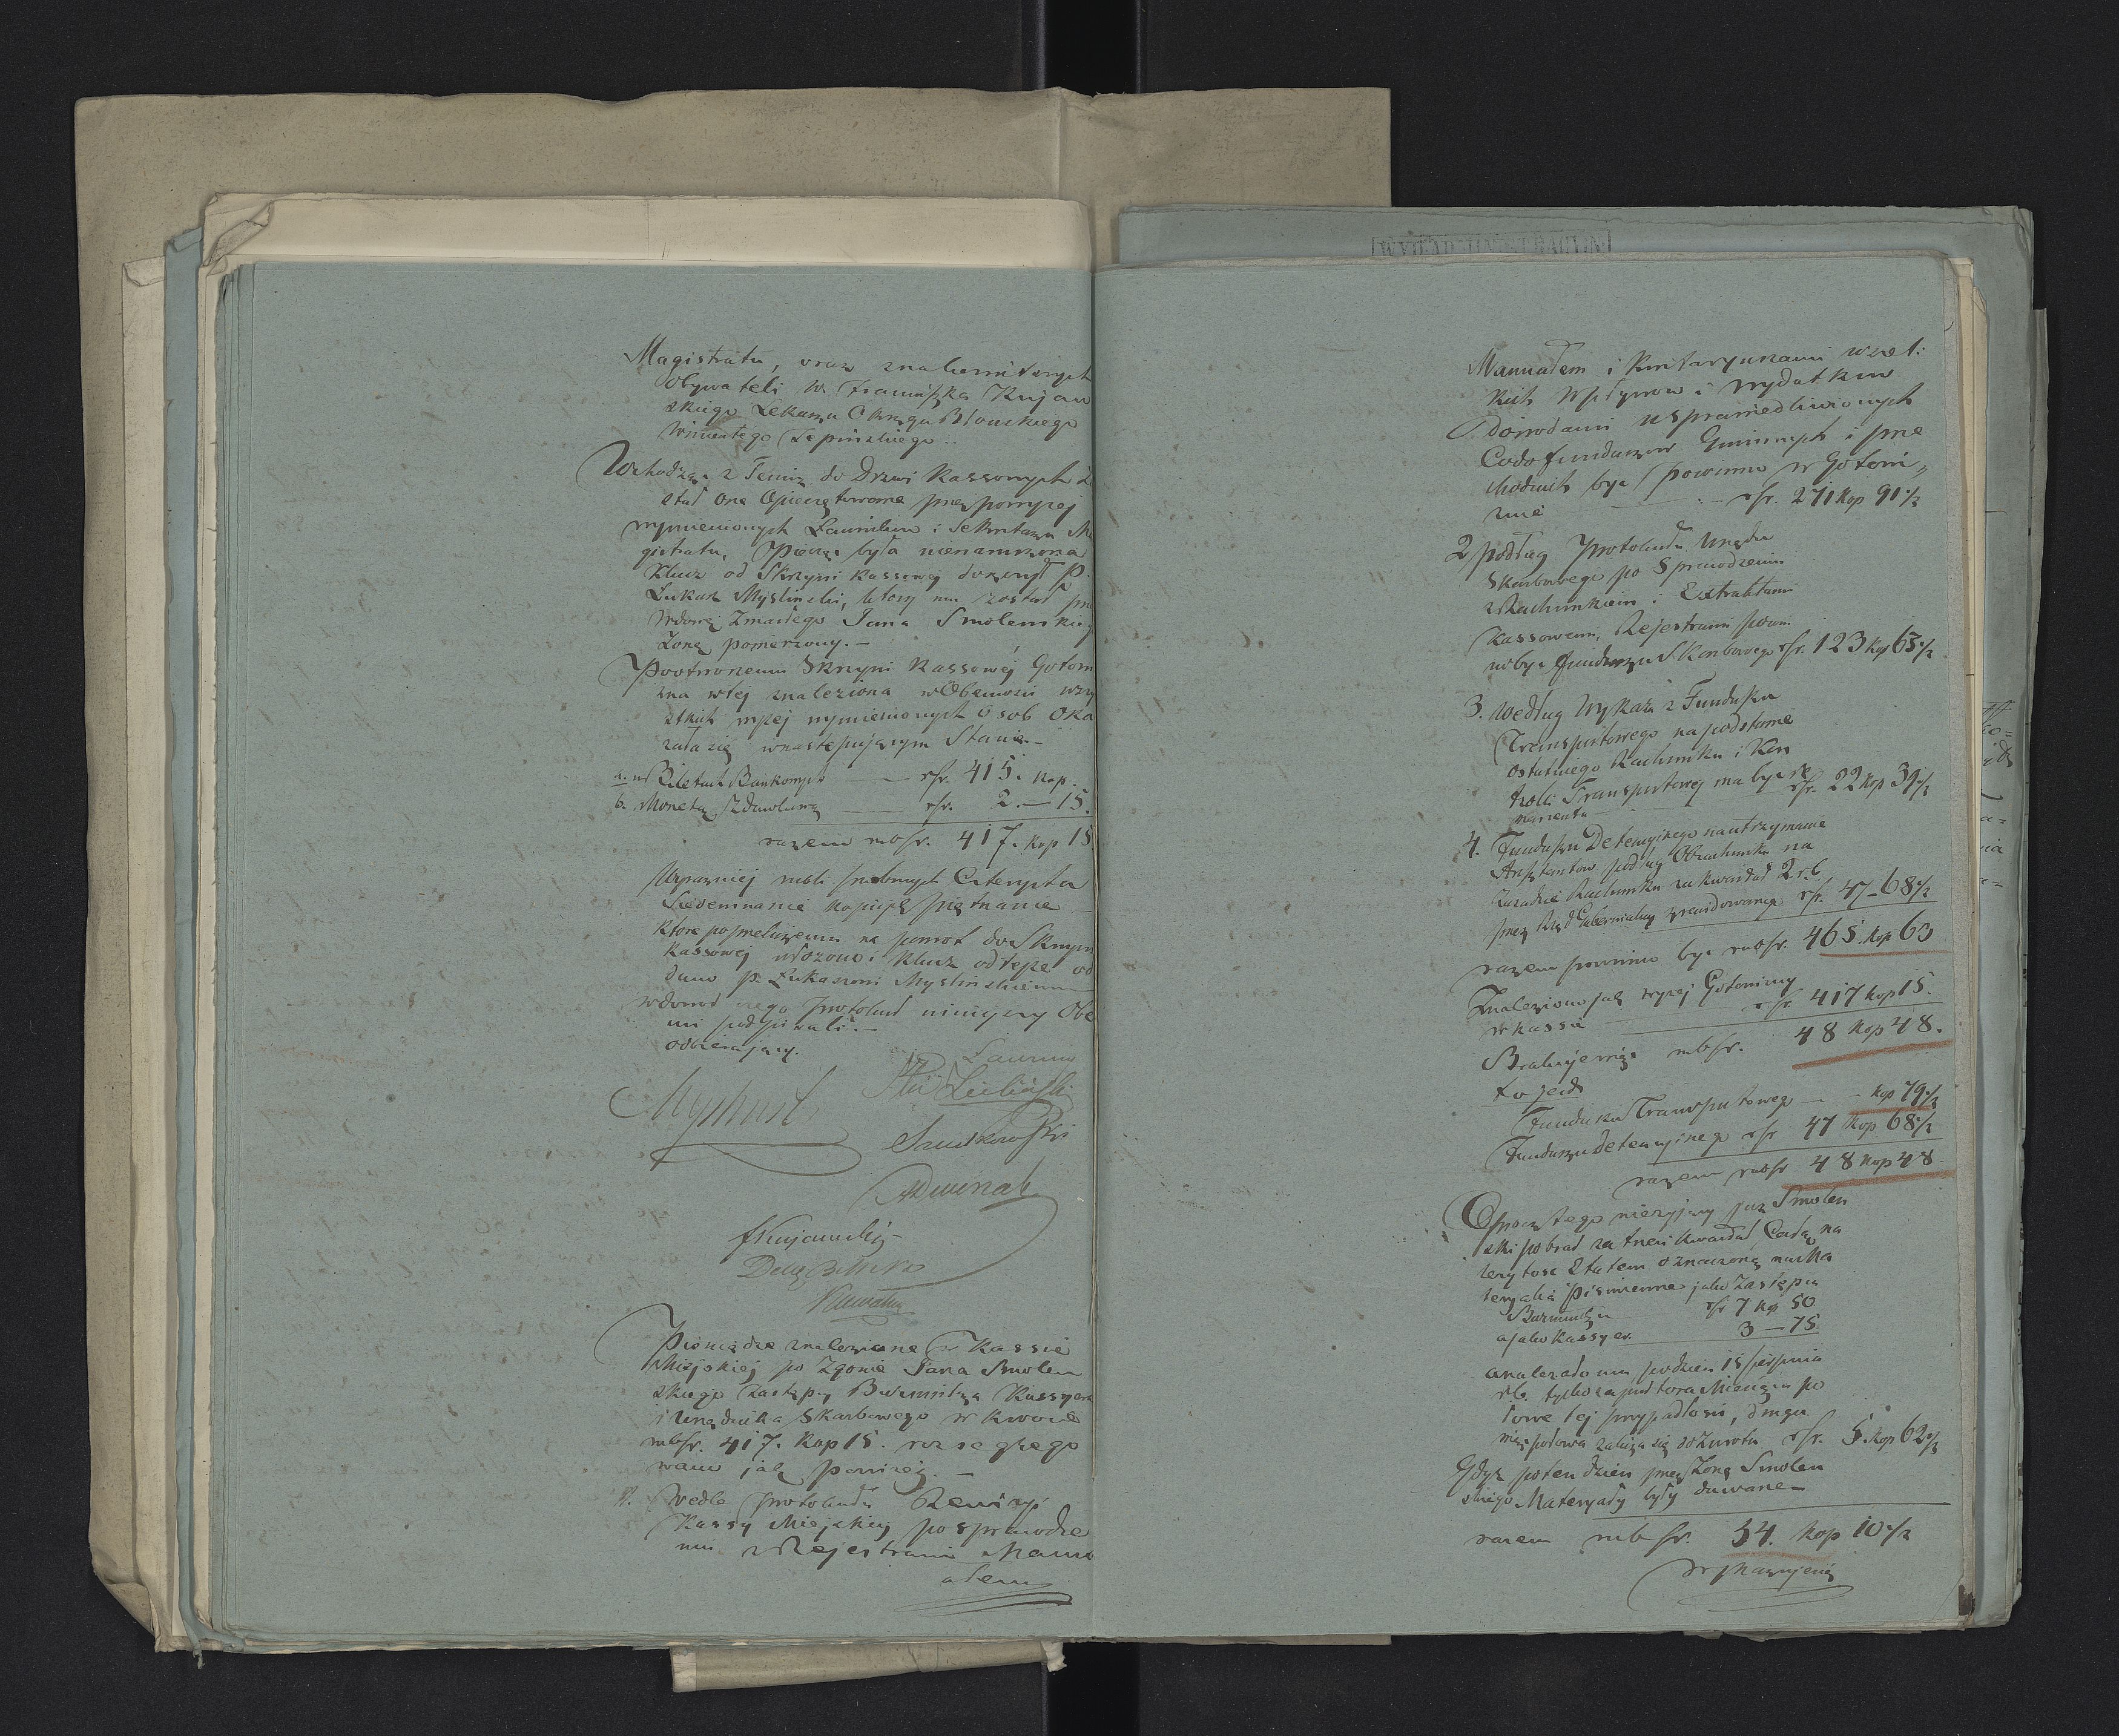 Magistratu, oraz znakomitszych
Obywateli W. Franciszka Kujaw
skiego Lekarza Okręgu Błonskiego
Wincentego Łapińskiego..
Wchodząc z Temiz do Drzwi Kassowych
stał one Opieczętowane przez powyżej
wymienionych Ławnikow i Sekretarza Ma
gistratu, Pieczęć była nienaruszona
Klucz od Skrzyni Kassowej doręczył P.
Łukasz Mysliński, ktory mu został prze
Wdowę Zmarłego Jana Smolenskiego
Żonę powierzony. —
Po otworzeniu Skrzyni Kassowéj Gotow
zna w tej znaleziona w Obecnosci wszy
stkich wyżej wymienionych Osob Oka
zała się w następującym Stanie. —
a. w Biletach Bankowych — rsr. 415. Kop.
b. Monetą Zdawkową — rsr. 2. — 15.
razem rubsr. 417. Kop 15
Wyrazniej rubli srebrnych Czterysta
Siedemnascie kopiejek piętnascie
Ktore po przeliczeniu na powrot do Skrzyni
Kassowej włożono i Klucz od tejże od
dano P. Łukaszowi Myslinskiemu
w dowod czego Protokuł niniejszy Obe
cni podpisali. —
Odbierający.
Ławnik
Kujawski
Pieniądze znalezione w Kassie
Miejskiej po Zgonie Jana Smolen
skiego Zastępcy Burmistrza Kassyera
i Urzędnika Skarbowego w kwocie
rubsr. 417. Kop 15. roz se grego
wano jak poniżej. —
1. Wedle Protokułu Rewizyi
Kassy Miejskiej po sprawdze
niu z Rejestrami Manu
ałem
WYDZ. ADMINISTRACYJNY
Manuałem i Kwitaryuszami wszel:
kich Wpływow i wydatkow
Dowodami usprawiedliwionych
Co do funduszow Gminnych i prze
chodnich być powinno w Gotowi„
znie — rsr. 271 Kop 91½
2 podług Protokułu Urzędu
Skarbowego po Sprawdzeniu
z Rachunkiem i Extraktami
Kassowemi, Rejestrami powin
no być funduszu Skarbowego rsr. 123 Kop 63½
3. Według Wykazu z Funduszu
Transportowego na podstawie
Ostatniego Rachunku i Kon
troli Transportowej ma być re
manentu — rsr. 22 Kop 39½
4. Funduszu Detencyinego na utrzymanie
Aresztantow podług Obrachunku na
zasadzie Rachunku za kwartał 2 r. b.
przez Rząd Gubernialny zrewidowanego rsr. 47 – 68½
razem powinno być rubsr. 465. Kop 63
Znaleziono jak wyżej Gotowizny
w kassie — rsr. 417 Kop 15.
Brakuje więc rubsr. 48 Kop 48.
to jest
Funduszu Transportowego — Kop 79½
Funduszu Detencyinego rsr 47 Kop 68½
razem rubsr 48 Kop 48
Oprocz tego nieżyjący już Smolen
ski pobrał za trzeci kwartał Całą na
leżytosc Etatem oznaczoną na Ma
teryały Pismienne jako Zastępca
Burmistrza rsr 7 Kop 50
a jako Kassyer — 3 — 75
a należało mu po dzień 15 sierpnia
r. b. tylko za poltora Miesiąca po
łowe tej przypadłosci, druga
więc połowa należy się do zwrotu rsr. 5 Kop 62½
Gdyż po ten dzien przez Żonę Smolen
skiego Materyały były dawane —
razem rub sr. 54. Kop 10½